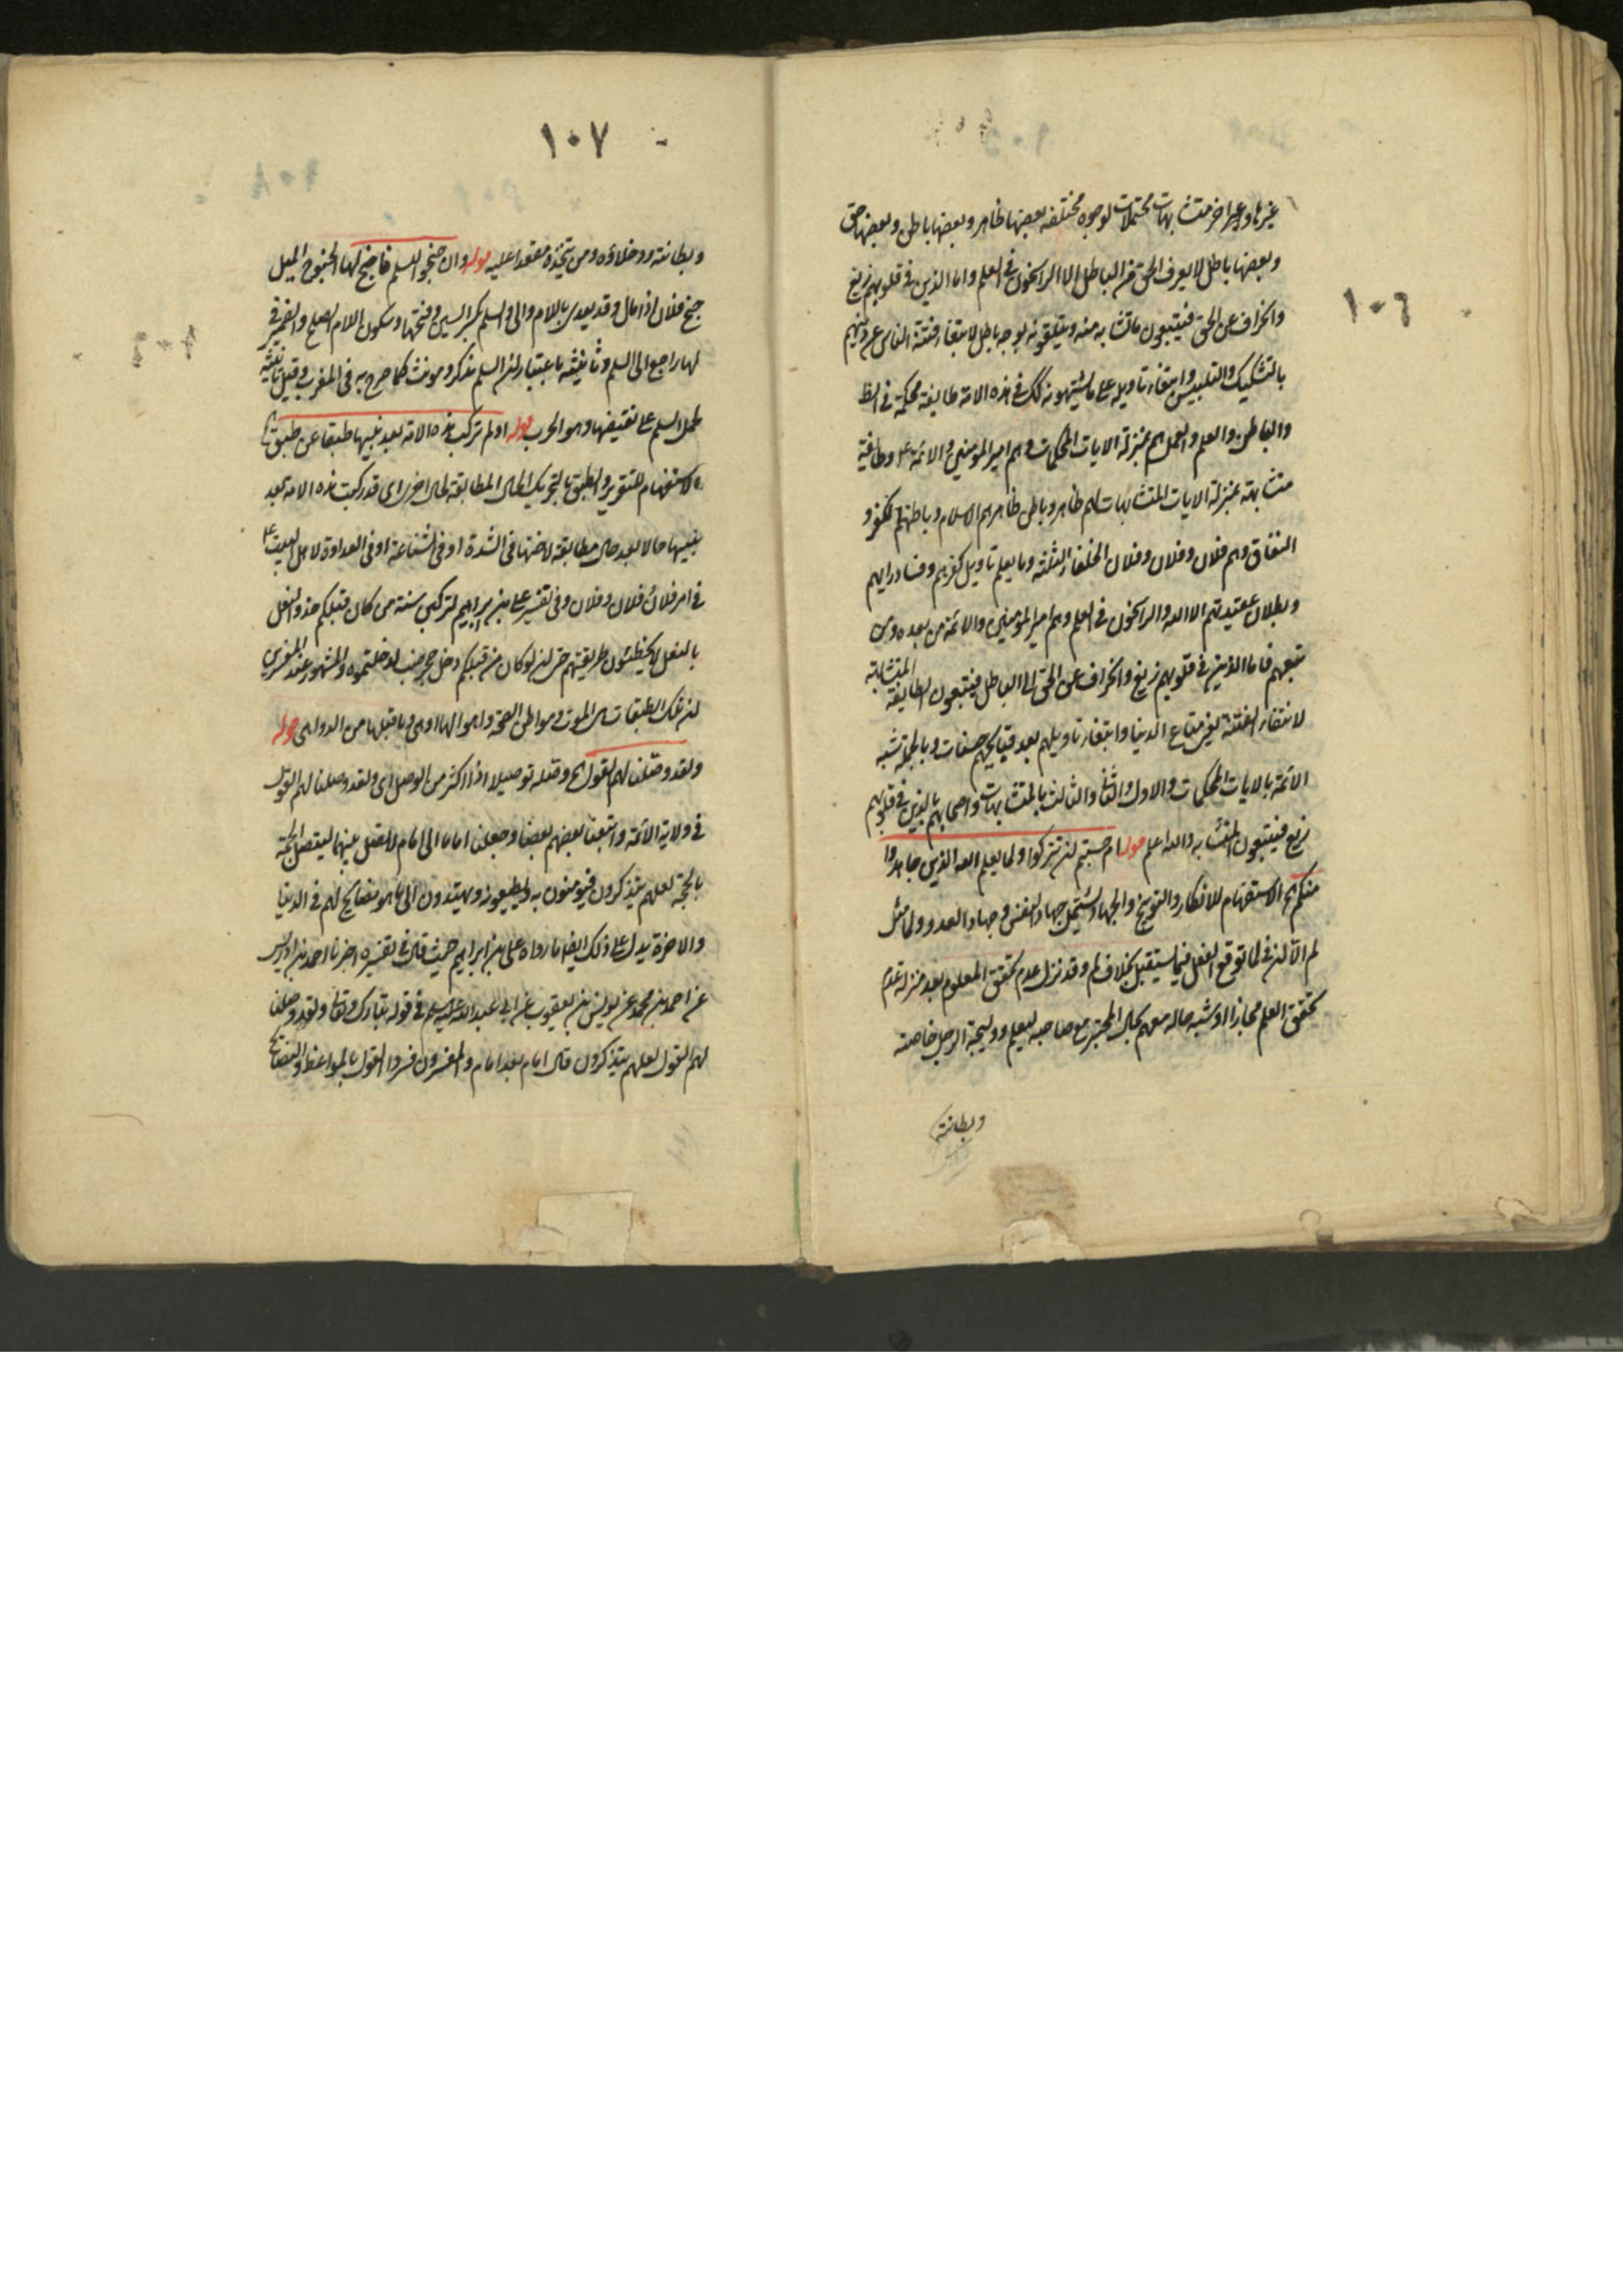 ١٠٦
غيرها وعبر اخر متشابهات محتملات لوجوه مختلفه بعضها ظاهر وبعضها باطن وبعضها حق
وبعضها باطل لا يعرف الحق من الباطل الا الراسخون في العلم واما الذين في قلوبهم زيغ
وانحراف عن الحق فيتبعون ما تشابه منه ويتلقونه بوجه باطل لابتغاء فتنة الناس عن دينهم
بالتشكيك والتلبيس وابتغاء تاويله على ما يشتهونه كك في هذه الامة طايفة محكمة في الظ
والباطن والعلم والعمل هم بمنزلة الايات المحكمات وهم امير المومنين والائمة ع وطايفة
متشابهة بمنزلة الايات المتشابهات لهم ظاهر وباطن ظاهرهم الاسلام وباطنهم الكفر و
النفاق وهم فلان وفلان وفلان الخلفاء الثلثة وما يعلم تاويل كفرهم وفساد رايهم
وبطلان عقيدتهم الا الله والراسخون في العلم وهم امير المؤمنين والائمة من بعده ومن
تبعهم فاما الذين في قلوبهم زيغ وانحراف عن الحق الى الباطل فيتبعون الطايفة المتشابهة
لابتغاء الفتنة لغير متاع الدنيا وابتغاء تاويلهم بعد قبايحهم حسنات وبالجملة شبه
الائمة بالايات المحكمات والاول والثاني والثالث بالمتشابهات واصحابهم بالذين في قلوبهم
زيغ فيتبعون المتشابه والله اعلم قوله ام حسبتم ان تتركوا ولما يعلم الله الذين جاهدوا
منكم اه الاستفهام للانكار والتوبيخ والجهاد يشتمل جهاد النفس وجهاد العدو ولما مثل
لم الا ان في لما توقع الفعل فيما يستقبل بخلاف لم وقد نزل عدم تحقق المعلوم بعد منزلة عدم
تحقق العلم مجازا او شبه حاله معهم بحال المختبر مع صاحبه ليعلم ووليجة الرجل خاصته
وبطانته
١٠٧
وبطانته ودخلاؤه ومن يتخذه معتمدا عليه قوله وان جنحوا للسلم فاجنح لها الجنوح الميل
جنح فلان اذا مال وقد يعدى باللام والى والسلم بكسر السين وفتحها وسكون اللام الصلح والضمير في
لها راجع الى السلم وتانيثه باعتبار ان السلم يذكر ويونث كما صرح به في المغرب وقيل تانيثه
لحمل السلم على نقيضها وهو الحرب قوله اولم تركب هذه الامة بعد نبيها طبقا عن طبق اه
الاستفهام للتقرير والطبق بالتحريك الحال المطابقة لحال اخرى اى قد ركبت هذه الامة بعد
نبيها حالا بعد حال مطابقة لاختها في الشدة او في الشناعة او في العداوة لاهل البيت ع
في امر فلان فلان وفلان وفى تفسير على بن ابراهيم لتركبن سنة من كان قبلكم حذو النعل
بالنعل لا تخطئون طريقتهم حتى ان لو كان من قبلكم دخل جحر ضب لدخلتموه والمشهور عند المفسرين
ان تلك الطبقات هى الموت ومواطن القيمة واهوالها او هى وما قبلها من الدواهى قوله
ولقد وصلنا لهم القول اه وصله توصيلا اذا اكثر من الوصل اى ولقد وصلنا لهم القول
في ولاية الائمة واتبعنا بعضهم بعضا وجعلنا اماما الى امام لا فصل بينهما ليتصل الحجة
بالحجة لعلهم يتذكرون فيؤمنون به ويطيعونه ويهتدون الى ما هو نصايح لهم في الدنيا
والاخرة يدل على ذلك ايضا ما رواه على بن ابراهيم حيث قال في تفسيره اخبرنا احمد بن ادريس
عن احمد بن محمد عن يونس بن يعقوب عن ابى عبد الله عليه السلم في قوله تبارك وتعالى ولقد وصلنا
لهم القول لعلهم يتذكرون قال امام بعد امام والمفسرون فسروا القول بالمواعظ والنصايح